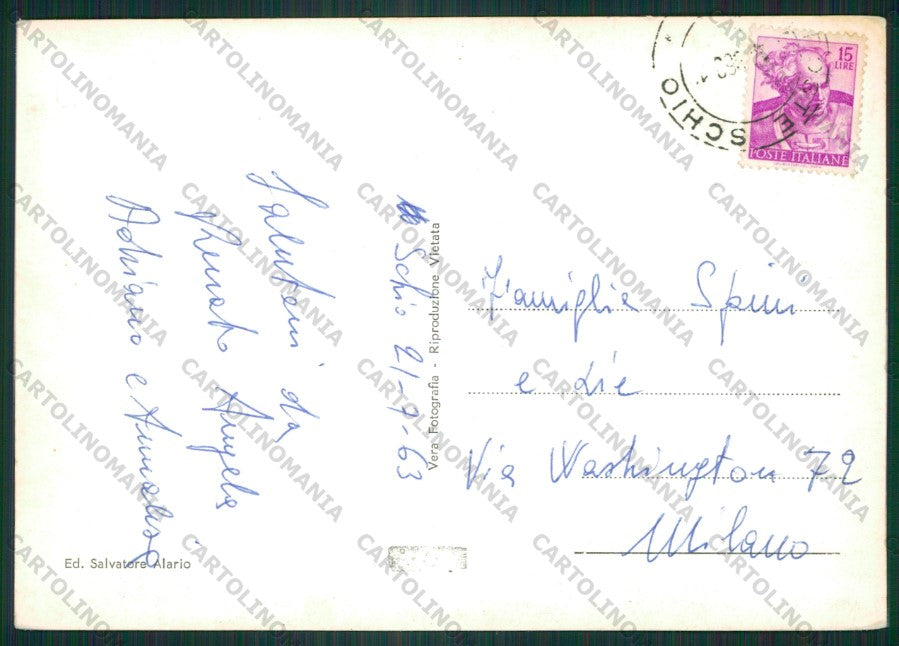 Schio 21-9-63
Saluteni da
Renato Angela
Adriano e Annalisa
Vera Fotografia - Riproduzione Vietata
Ed. Salvatore Alario
SCHIO
15
LIRE
POSTE ITALIANE
Famiglia Spini
e Zie
Via Washington 72
Milano
CARTOLINOMANIA